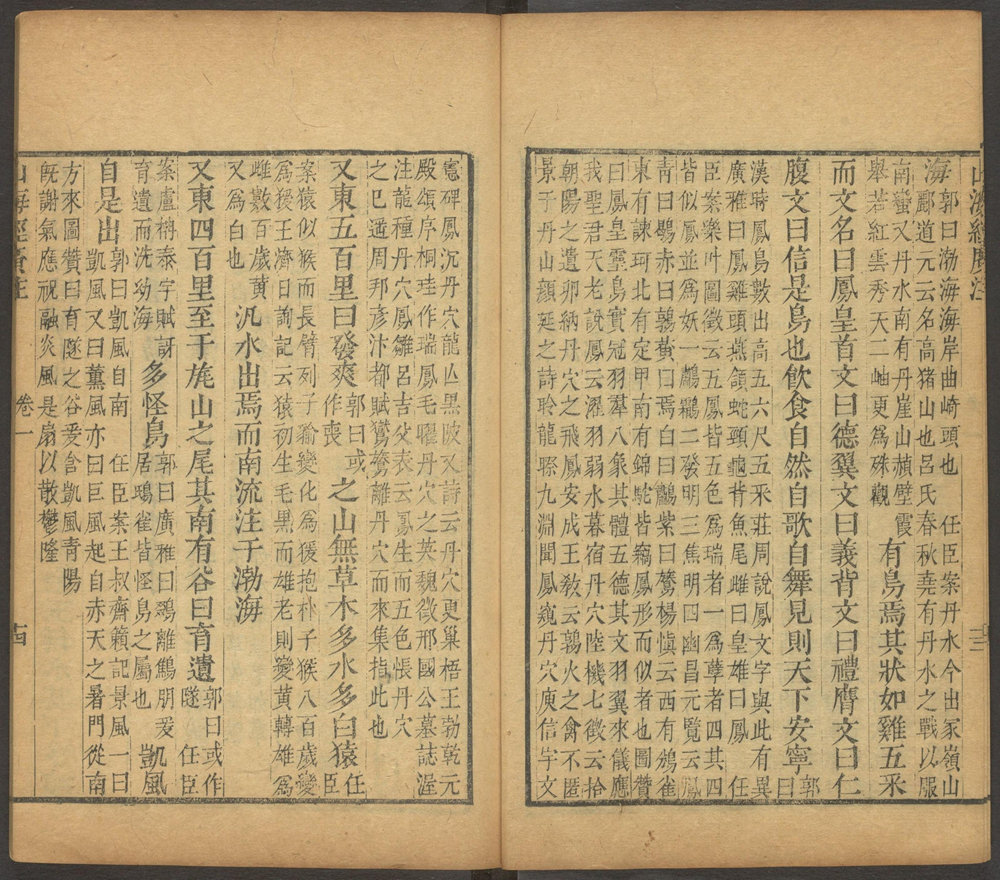 山海經廣注
海 郭曰渤海海岸曲崎頭也 任臣案丹水今出冢嶺山
酈道元云名高猪山也呂氏春秋堯有丹水之戰以服
南蠻又丹水南有丹崖山赬壁霞
舉若紅雲秀天二岫更爲殊觀 有鳥焉其狀如雞五采
而文名曰鳳皇首文曰德翼文曰義背文曰禮膺文曰仁
腹文曰信是鳥也飲食自然自歌自舞見則天下安寧 郭曰
漢時鳳鳥數出高五六尺五采莊周說鳳文字與此有異
廣雅曰鳳雞頭燕頷蛇頸龜背魚尾雌曰皇雄曰鳳 任
臣案樂叶圖徵云五鳳皆五色爲瑞者一爲孽者四其四
皆似鳳並爲妖一鸘鸘二發明三焦明四幽昌元覽云鳳
青曰鶡赤曰鶉黃曰焉白曰鸘紫曰鷟楊愼云西有鵷雀
東有諫珂北有定甲南有錦駝皆竊鳳形而似者也圖贊
曰鳳皇靈鳥實冠羽羣八象其體五德其文羽翼來儀應
我聖君天老說鳳云濯羽弱水暮宿丹穴陸機七徵云拾
朝陽之遺卵納丹穴之飛鳳安成王敎云鶉火之禽不匿
景于丹山顔延之詩聆龍䁮九淵聞鳳窺丹穴庾信宇文
憲碑鳳沉丹穴龍亾黑陂又詩云丹穴更巢梧王勃乾元
殿頌序桐珪作瑞鳳毛曜丹穴之英魏徵邢國公墓誌渥
注龍種丹穴鳳雛呂吉父表云鳳生而五色悵丹穴
之已遥周邦彥汴都賦鸑鷟離丹穴而來集指此也
又東五百里曰發爽 郭曰或作喪 之山無草木多水多白猿 任臣
案猿似猴而長臂列子瑜變化爲猨抱朴子猴八百歲變
爲猨王濟日詢記云猿初生毛黑而雄老則變黃轉雄爲
雌數百歲黃
又爲白也 汎水出焉而南流注于渤海
又東四百里至于旄山之尾其南有谷曰育遺 郭曰或作隧 任臣
案盧柟泰宇賦訝
育遺而洗幼海 多怪鳥 郭曰廣雅曰鷄離鷦朋爰
居鴟雀皆怪鳥之屬也 凱風
自是出 郭曰凱風自南 任臣案王叔齊籟記景風一曰
凱風又曰薰風亦曰巨風起自赤天之暑門從南
方來圖贊曰有隧之谷爰含凱風青陽
旣謝氣應祝融炎風是扇以散鬱隆
山海經廣注 卷一 十四